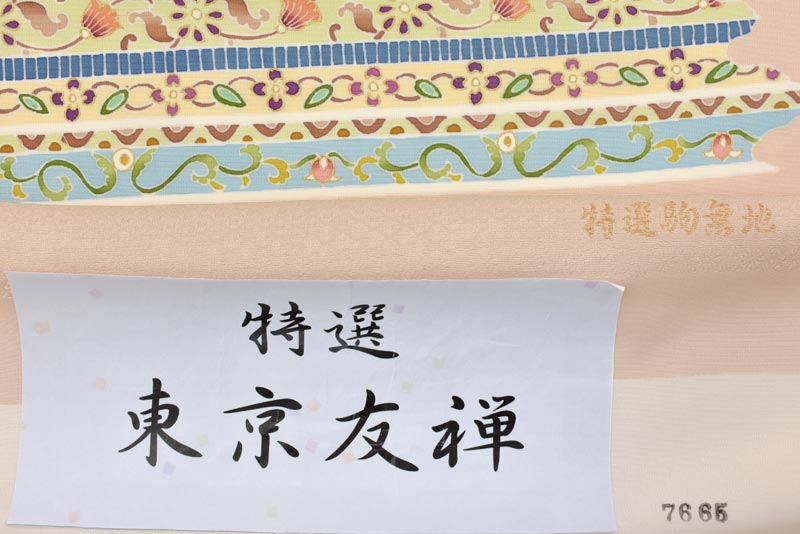 特選駒無地
特選
東京友禅
7665